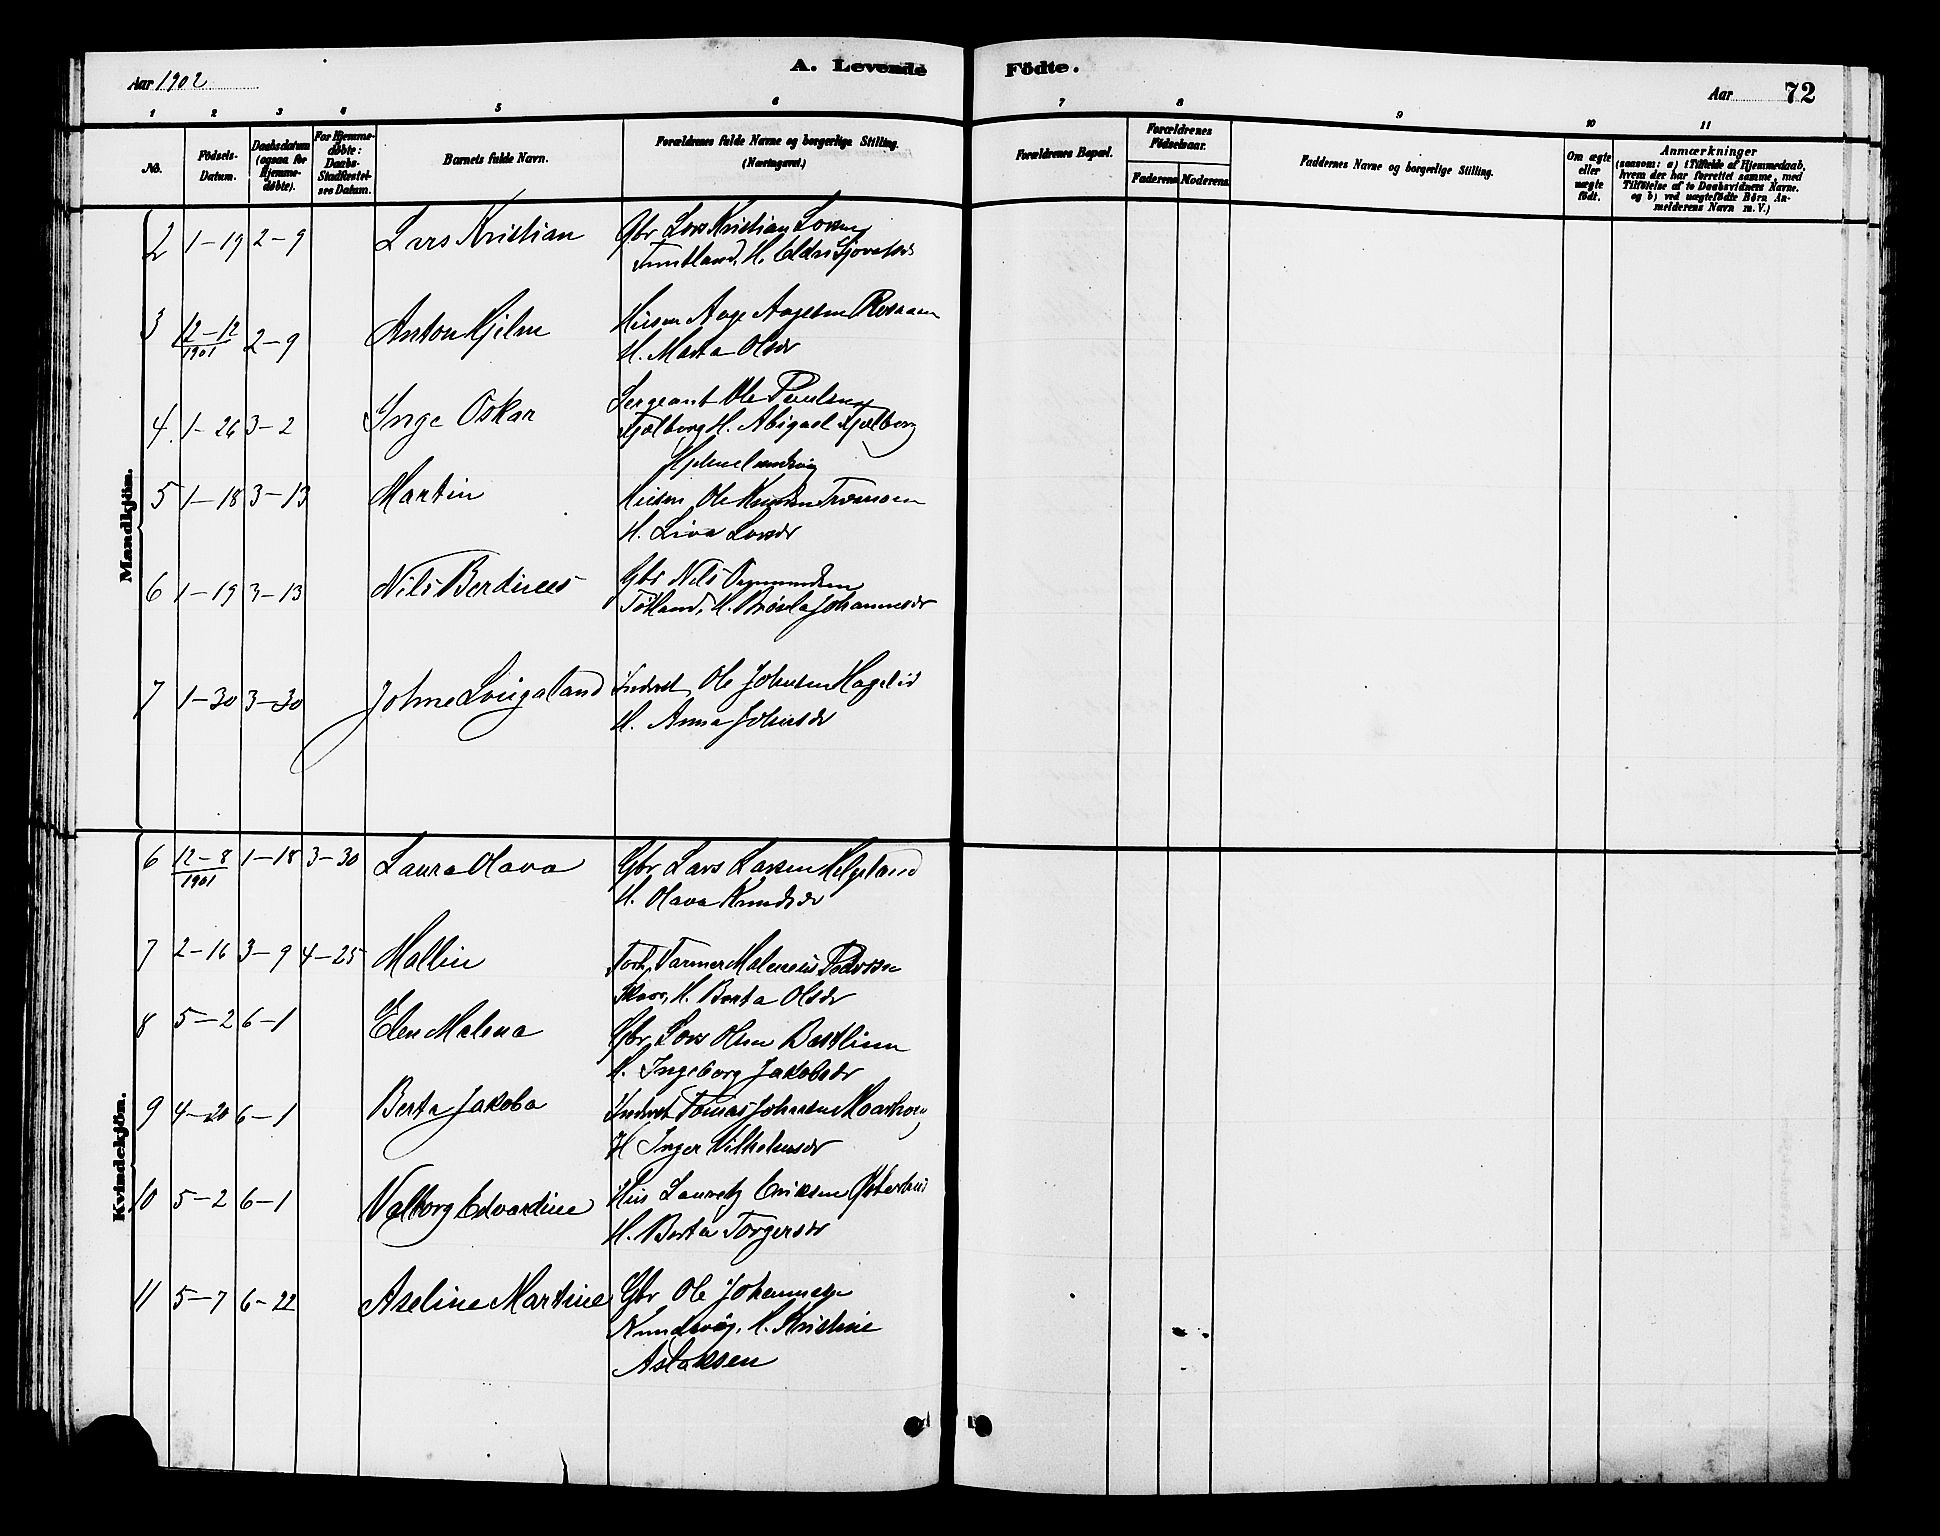 Aar 1902
A. Levende Födte.
Aar 72
1 2 3 4 5 6 7 8 9 10 11
No.
Födsels-Datum.
Daabsdatum (ogsaa for Hjemme-døbte).
For Hjemme-døbte: Daabs-Stadfæstel-ses Datum.
Barnets fulde Navn.
Forældrenes fulde Navne og borgerlige Stilling. (Næringsvei.)
Forældrenes Bopæl.
Forældrenes Födselsaar.
Faderens Moderens
Faddernes Navne og borgerlige Stilling.
Om ægte eller uægte födt.
Anmærkninger
(saasom: a) i Tilfælde af Hjemmedaab, hvem der har forrettet samme, med Tilföielse af to Daabsvidners Navne. og b) ved uægtefödte Börn An-melderens Navn m. V.)
Mandkjön.
2 1-19 2-9 Lars Kristian Gbr Lars Kristian Larsen
H. Eldri Sjovatsdr
3 12-12 1901 2-9 Anton Hjelm Husm Aage Aagesen Rossaen
H. Marta Olsdr
4. 1-26 3-2 Inge Oskar Sergeant Ole Paulsen
Fjælberg H. Abigael Fjælberg
5 1-18 3-13 Martin Husm Ole Knudsen
H. Liva Larsdr
6 1-19 3-13 Nils Berdines Gbr Nils Osmundsen
H. Johannesdr
7 1-30 3-30 Johne Svigaland Inderst Ole Johnsen Hagelid
H. Anna Johnsdr
Kvindekjön.
6 12-8 1901 1-18 3-30 Laura Olava Gbr Lars Larsen Helgeland
H. Olava Knudsdr
7 2-16 3-9 4-25 Mallin Farmer Pedersen
H. Berta Olsdr
8 5-2 6-1 Elen Malena Gbr Lars Olsen Bastlien
H. Ingeborg Jakobsdr
9 4-20 6-1 Berta Jakoba Inderst Tomas Johnsen
H Inger Vilhelmsdr
10 5-2 6-1 Valborg Edvardine Hus Lauretz Eriksen Østerhus
H. Berta Torgersdr
11 5-7 6-22 Aseline Martine Gbr Ole Johannesen
H. Kristine
Aslaksen